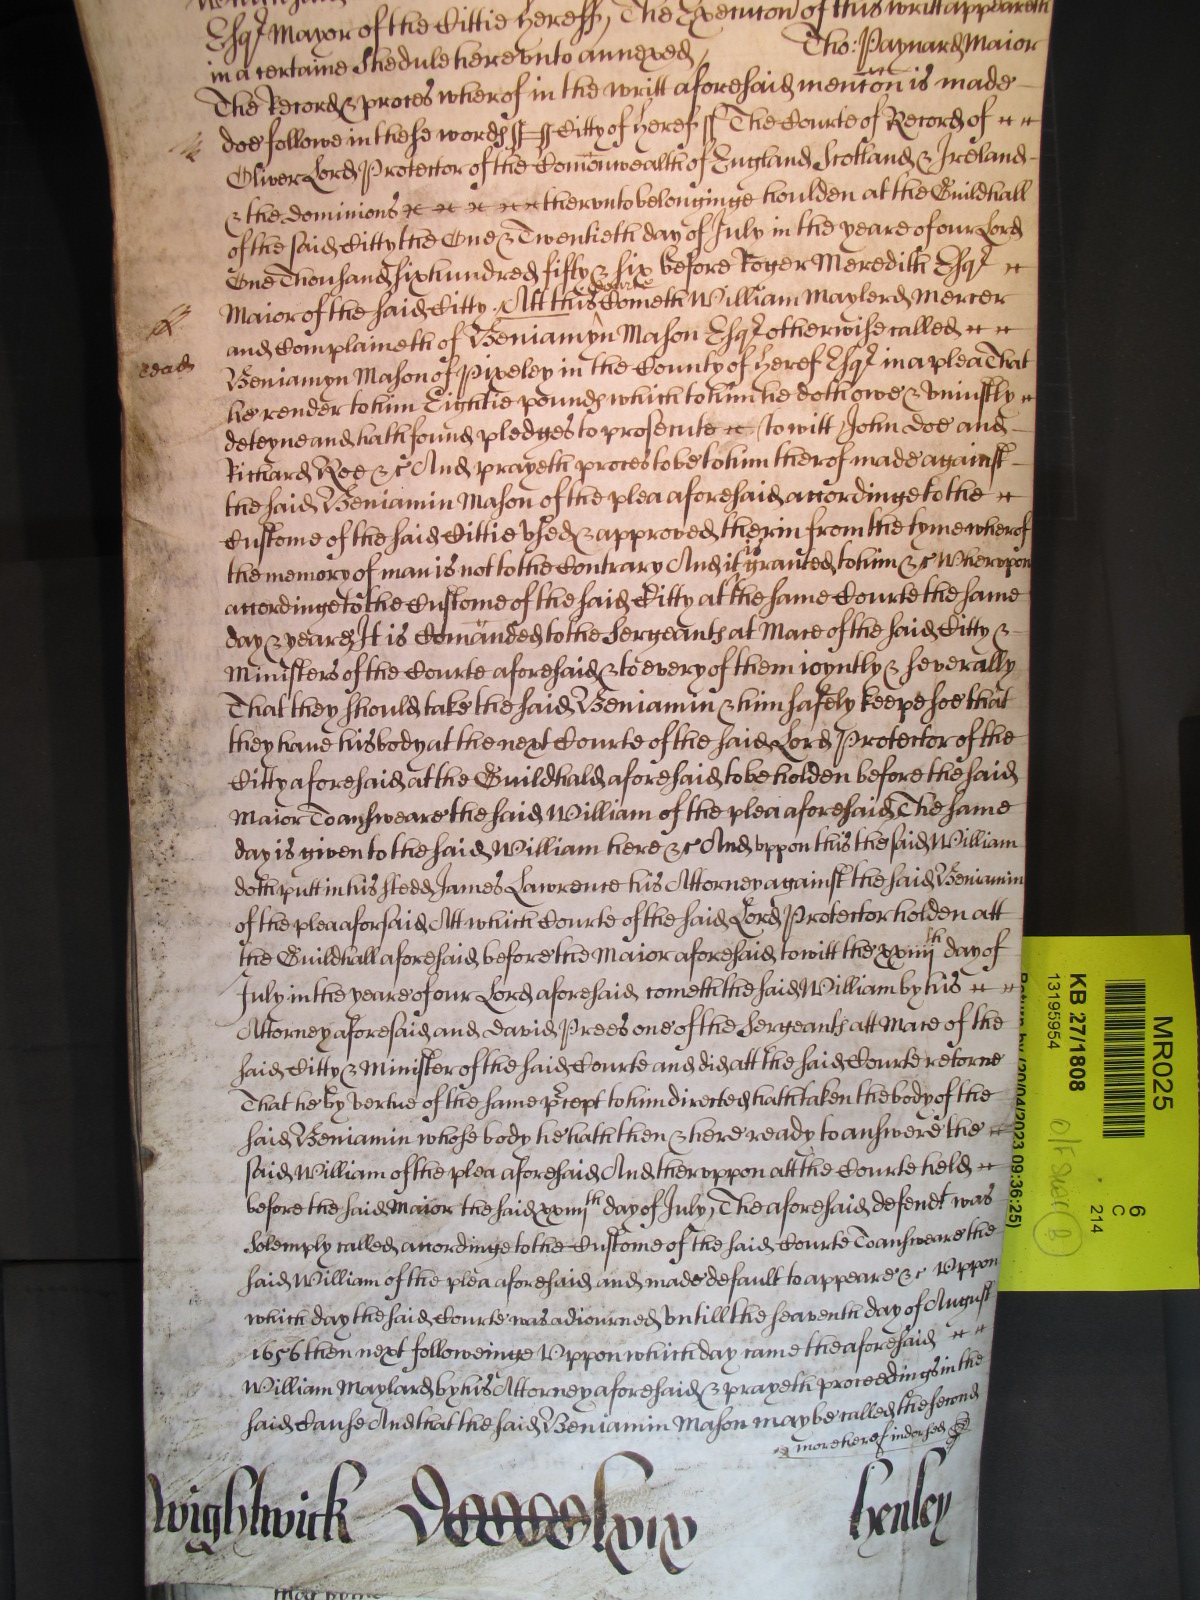 Esqr Maior of the Cittie heress, The Execucon of this writt appeareth
in a certaine Shedule herevnto annexed, Tho: Paynard Maior
The Record & proces wherof in the writt aforesaid mencon is made
doe followe in these words ss ss Citty of heref ss The Courte of Record of
Oliver Lord Protector of the Comonwealth of England Scotland & Ireland
& the dominions thervnto belonginge houlden at the Guildhall
of the said Citty the One & Twentieth day of July in the yeare of our Lord
One Thousand six hundred fifty & six before Roger Meredith Esqr
Maior of the said Citty. Att this Courte Cometh William Maylerd Mercer
and Complaineth of Beniamyn Mason Esqr otherwise called
Beniamyn Mason of Pixeley in the County of heref Esqr in a plea That
he render to him Eightie pounds which to him he doth owe & vniustly
deteyne and hath found pledges to prosecute to witt John Doe and
Richard Roe &c And prayeth proces to be to him therof made against
the said Beniamin Mason of the plea aforesaid accordinge to the
Custome of the said Cittie vsed & approved therin from the tyme wherof
the memory of man is not to the Contrary And it is graunted to him &c Whervpon
accordinge to the Custome of the said Citty at the same Courte the same
day & yeare, It is Comanded to the Sergeants at Mace of the said Citty &
Ministers of the Courte aforesaid & to every of them ioyntly & severally
That they should take the said Beniamin & him safely keepe soe that
they haue his body at the next Courte of the said Lord Protector of the
Citty aforesaid at the Guildhald aforesaid to be holden before the said
Maior To answeare the said William of the plea aforesaid The same
day is given to the said William here &c And vppon this the said William
doth putt in his stedd James Lawrence his Attorney against the said Beniamin
of the plea aforsaid Att which Courte of the said Lord Protector holden att
the Guildhall aforesaid before the Maior aforesaid to witt the xxiiijth day of
July in the yeare of our Lord aforesaid cometh the said William by his
Attorney aforesaid and david Prees one of the Sergeants att Mace of the
said Citty & Minister of the said Courte and did att the said Courte retorne
That he by vertue of the same prcept to him directed hath taken the body of the
said Beniamin whose body he hath then & here ready to answere the
said William of the plea aforesaid And thervppon att the Courte held
before the said Maior the said xxiiijth day of July, The aforesaid defendt was
solemply called accordinge to the Custome of the said Courte To answeare the
said William of the plea aforesaid and made default to appeare &c Vppon
which day the said Courte was adiourned vntill the seaventh day of August
1656 then next followeinge Vppon which day came the aforesaid
William Maylard by his Attorney aforesaid & prayeth proceedings in the
said Cause And that the said Beniamin Mason may be called the second
more herof indorsed
Wightwick
lxix
henley
MR025
6
C
214
KB 27/1808
13195954
(B)
20/04/2023 09:36:25)